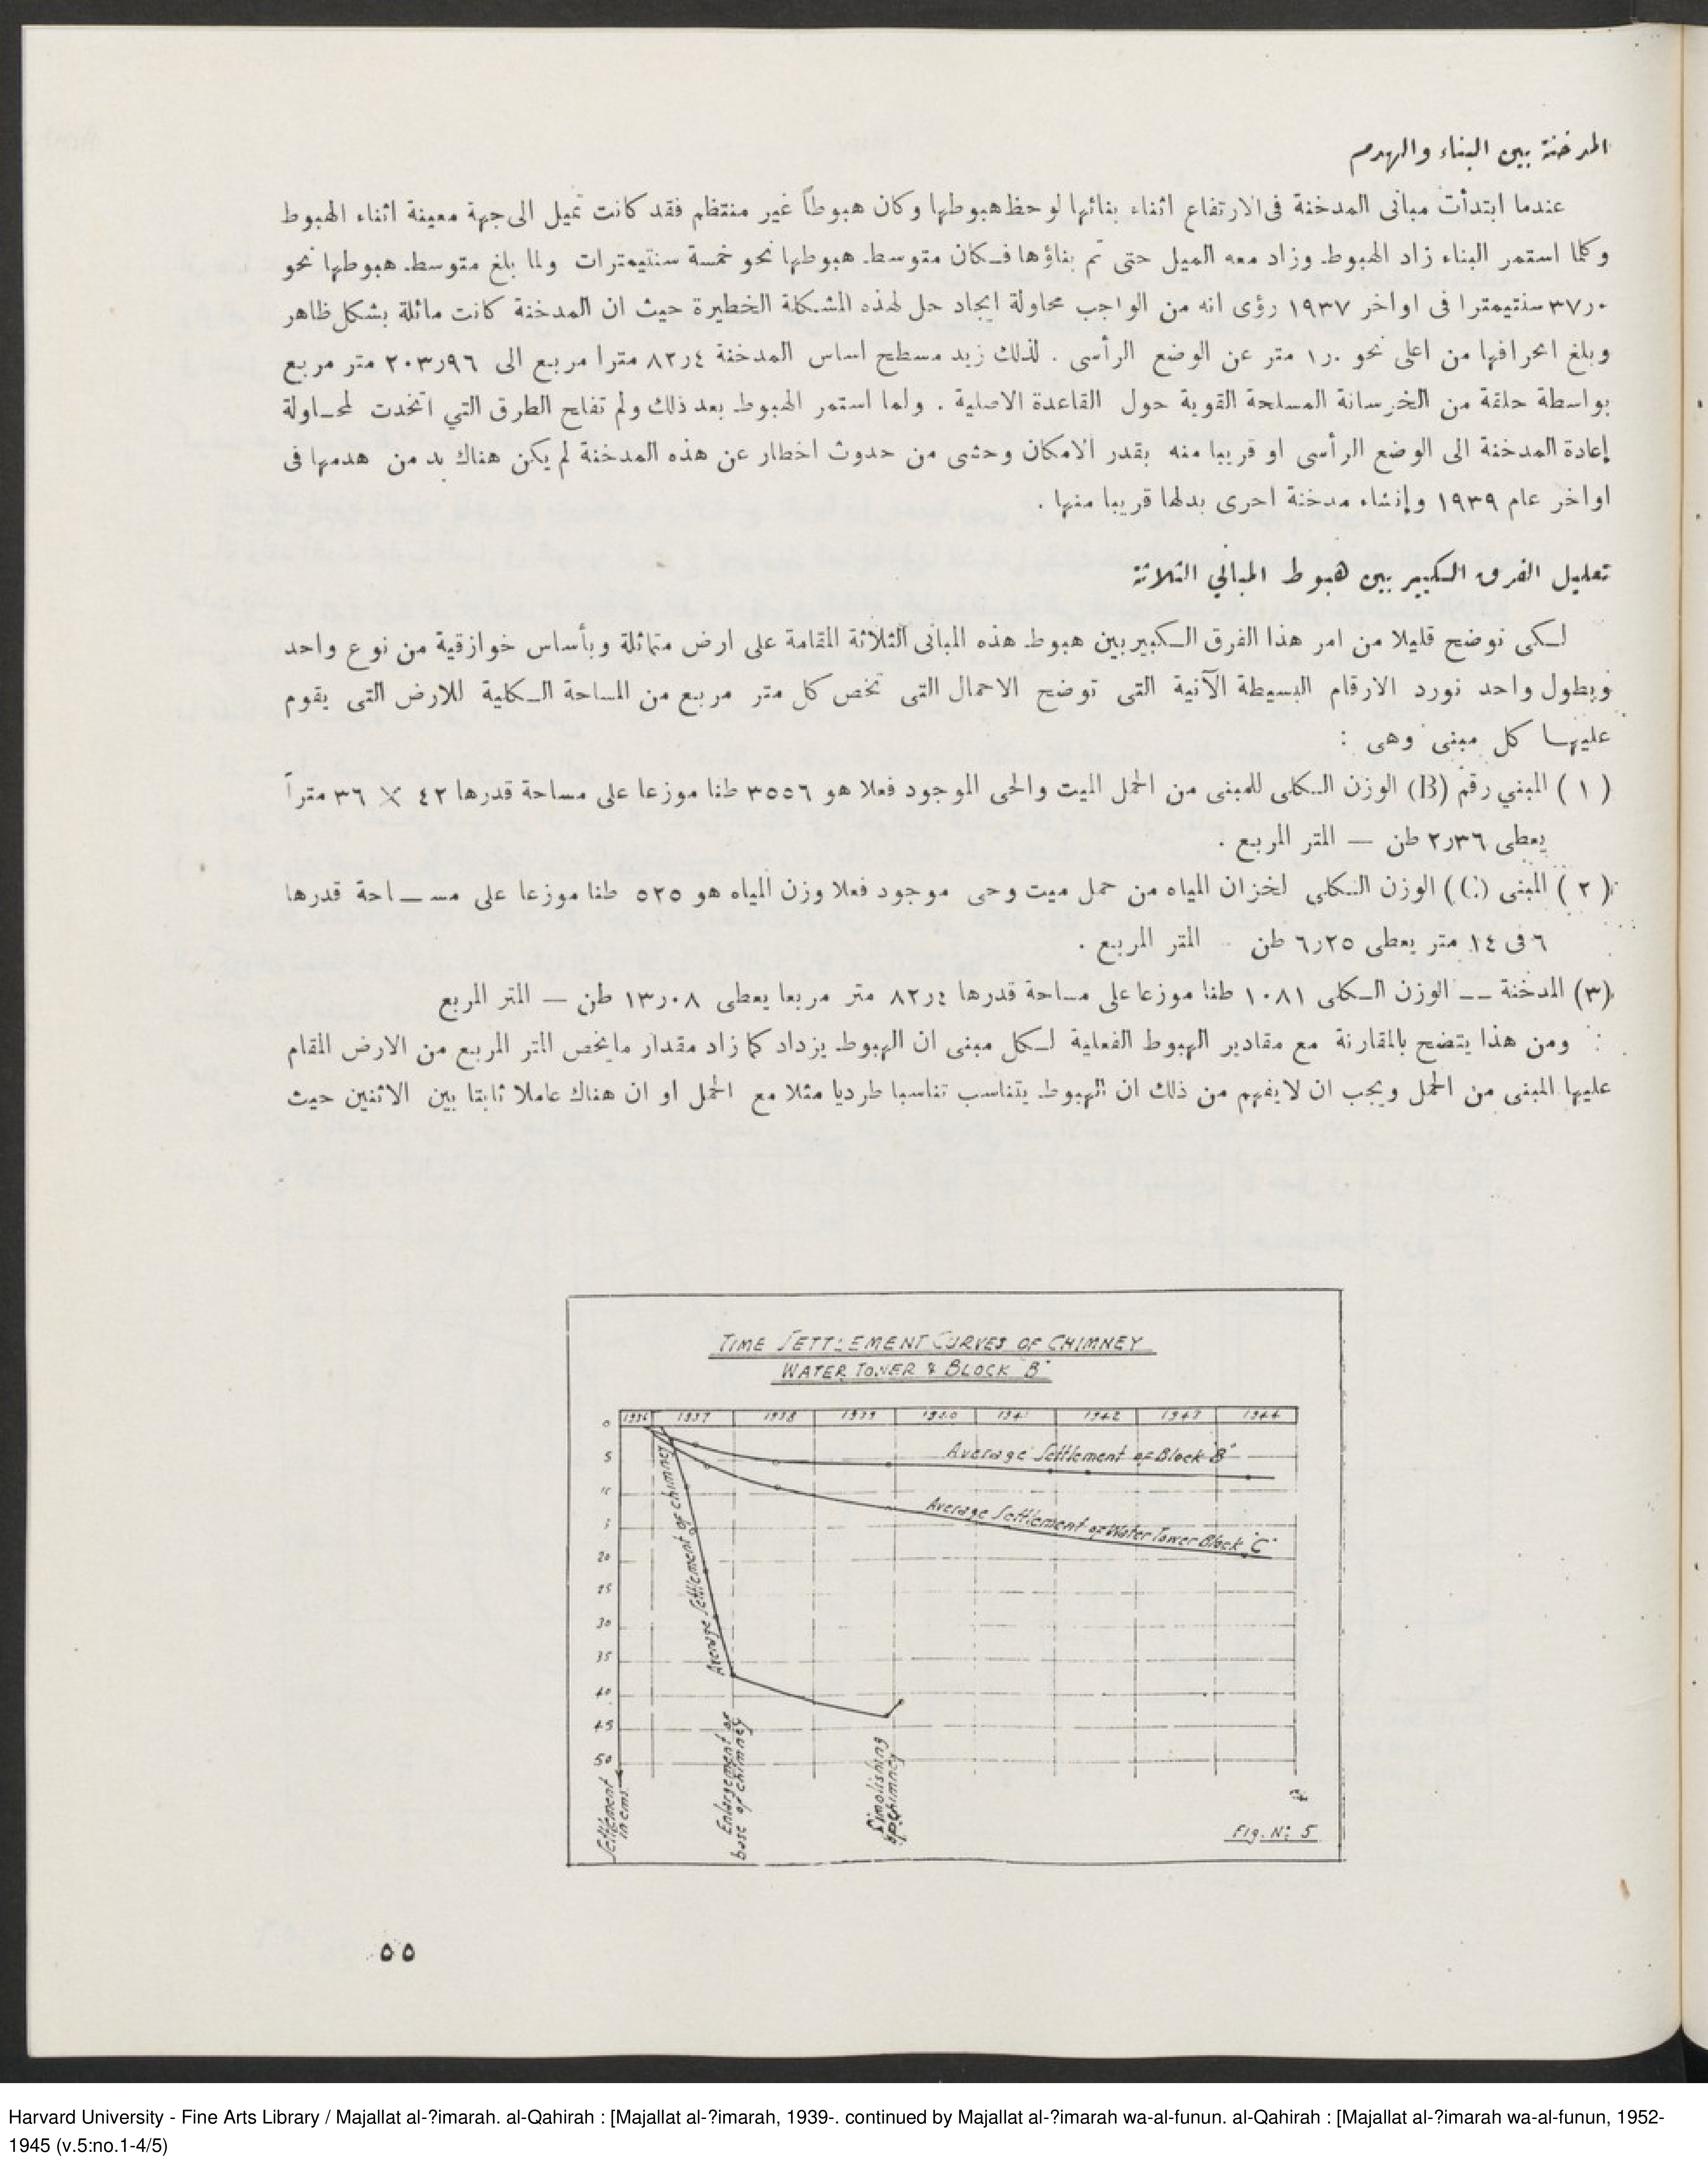 المدخنة بين البناء والهدم
عندما ابتدأت مبانى المدخنة فى الارتفاع اثناء بنائها لوحظ هبوطها وكان هبوطاً غير منتظم فقد كانت تميل الى جهة معينة اثناء الهبوط
وكلما استمر البناء زاد الهبوط وزاد معه الميل حتى تم بناؤها فكان متوسط هبوطها نحو خمسة سنتيمترات ولما بلغ متوسط هبوطها نحو
٣٧٫٠ سنتيمترا فى اواخر ١٩٣٧ رؤى انه من الواجب محاولة ايجاد حل لهذه المشكلة الخطيرة حيث ان المدخنة كانت مائلة بشكل ظاهر
وبلغ انحرافها من اعلى نحو ١٫٠ متر عن الوضع الرأسى . لذلك زيد مسطح اساس المدخنة ٨٢٫٤ مترا مربع الى ٢٠٣٫٩٦ متر مربع
بواسطة حلقة من الخرسانة المسلحة القوية حول القاعدة الاصلية . ولما استمر الهبوط بعد ذلك ولم تفلح الطرق التي اتخذت لمحاولة
إعادة المدخنة الى الوضع الرأسى او قريبا منه بقدر الامكان وخشى من حدوث اخطار عن هذه المدخنة لم يكن هناك بد من هدمها فى
اواخر عام ١٩٣٩ وإنشاء مدخنة اخرى بدلها قريبا منها .
تعليل الفرق الكبير بين هبوط المباني الثلاثة
لكى نوضح قليلا من امر هذا الفرق الكبير بين هبوط هذه المبانى الثلاثة المقامة على ارض متماثلة وبأساس خوازقية من نوع واحد
وبطول واحد نورد الارقام البسيطة الآتية التى توضح الاحمال التى تخص كل متر مربع من المساحة الكلية للارض التى يقوم
عليها كل مبنى وهى :
( ١ ) المبني رقم (B) الوزن الكلى للمبنى من الحمل الميت والحى الموجود فعلا هو ٣٥٥٦ طنا موزعا على مساحة قدرها ٤٢ × ٣٦ متراً
يعطى ٢٫٣٦ طن — المتر المربع .
( ٢ ) المبنى (C) الوزن الكلى لخزان المياه من حمل ميت وحى موجود فعلا وزن المياه هو ٥٢٥ طنا موزعا على مساحة قدرها
٦ فى ١٤ متر يعطى ٦٫٢٥ طن المتر المربع .
(٣) المدخنة — الوزن الكلى ١٠٨١ طنا موزعا على مساحة قدرها ٨٢٫٤ متر مربعا يعطى ١٣٫٠٨ طن — المتر المربع
ومن هذا يتضح بالمقارنة مع مقادير الهبوط الفعلية لكل مبنى ان الهبوط يزداد كما زاد مقدار مايخص المتر المربع من الارض المقام
عليها المبنى من الحمل ويجب ان لا يفهم من ذلك ان الهبوط يتناسب تناسبا طرديا مثلا مع الحمل او ان هناك عاملا ثابتا بين الاثنين حيث
TIME SETTLEMENT CURVES OF CHIMNEY
WATER TOWER & BLOCK "B"
1936 1937 1938 1939 1940 1941 1942 1943 1944
0
5
10
20
25
30
35
40
45
50
Average Settlement of Block "B"
Average Settlement of Water Tower Block "C"
Average Settlement of chimney
Settlement
in cms.
Enlargement of
base of chimney
Dimolishing
of chimney
Fig. No 5
٥٥
Harvard University - Fine Arts Library / Majallat al-?imarah. al-Qahirah : [Majallat al-?imarah, 1939-. continued by Majallat al-?imarah wa-al-funun. al-Qahirah : [Majallat al-?imarah wa-al-funun, 1952-
1945 (v.5:no.1-4/5)